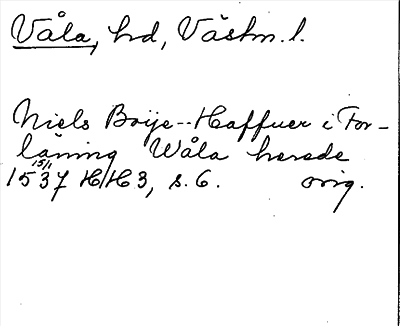 Våla, hd, Västm. l.
Niels Boije -- Haffuer i For-
läning Wåla herede
15/11
1537 HH 3, s. 6. orig.